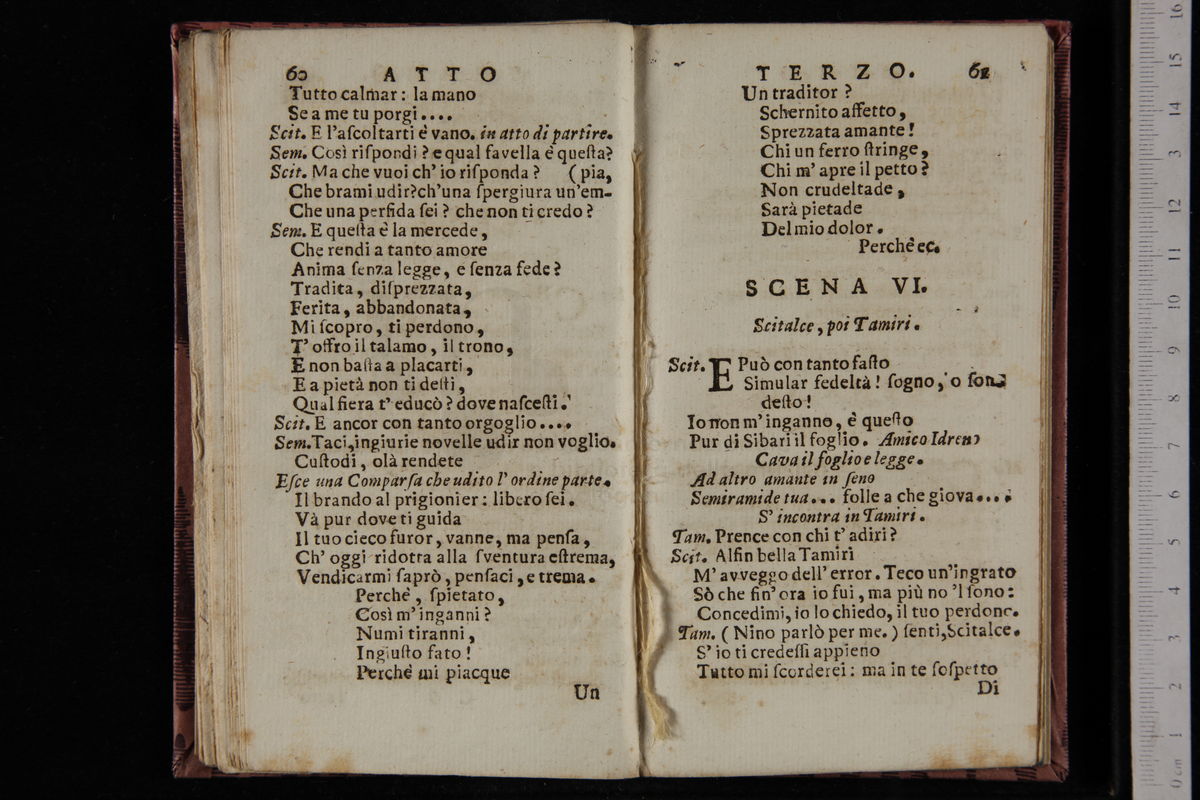 60 ATTO
Tutto calmar: la mano
Se a me tu porgi....
Scit. E l'aſcoltarti è vano. in atto di partire.
Sem. Così riſpondi? e qual favella è queſta?
Scit. Ma che vuoi ch' io riſponda? (pia,
Che brami udir?ch'una ſpergiura un'em-
Che una perfida ſei? che non ti credo?
Sem. E queſta è la mercede,
Che rendi a tanto amore
Anima ſenza legge, e ſenza fede?
Tradita, diſprezzata,
Ferita, abbandonata,
Mi ſcopro, ti perdono,
T' offro il talamo, il trono,
E non baſta a placarti,
E a pietà non ti deſti,
Qual fiera t' educò? dove naſceſti.
Scit. E ancor con tanto orgoglio....
Sem.Taci,ingiurie novelle udir non voglio.
Cuſtodi, olà rendete
Eſce una Comparſa che udito l' ordine parte.
Il brando al prigionier: libero ſei.
Và pur dove ti guida
Il tuo cieco furor, vanne, ma penſa,
Ch' oggi ridotta alla ſventura eſtrema,
Vendicarmi ſaprò, penſaci, e trema.
Perchè, ſpietato,
Così m'inganni?
Numi tiranni,
Ingiuſto fato!
Perchè mi piacque
Un
TERZO. 61
Un traditor?
Schernito affetto,
Sprezzata amante!
Chi un ferro ſtringe,
Chi m' apre il petto?
Non crudeltade,
Sarà pietade
Del mio dolor.
Perchè ec.
SCENA VI.
Scitalce, poi Tamiri.
Scit. E Può con tanto faſto
Simular fedeltà! ſogno, o ſon
deſto!
Io non m'inganno, è queſto
Pur di Sibari il foglio. Amico Idreno
Cava il foglio e legge.
Ad altro amante in ſeno
Semiramide tua... folle a che giova....
S' incontra in Tamiri.
Tam. Prence con chi t' adiri?
Scit. Alfin bella Tamiri
M' avveggo dell' error. Teco un'ingrato
Sò che fin' ora io fui, ma più no 'l ſono:
Concedimi, io lo chiedo, il tuo perdono.
Tam. (Nino parlò per me.) ſenti,Scitalce.
S' io ti credeſſi appieno
Tutto mi ſcorderei: ma in te ſoſpetto
Di